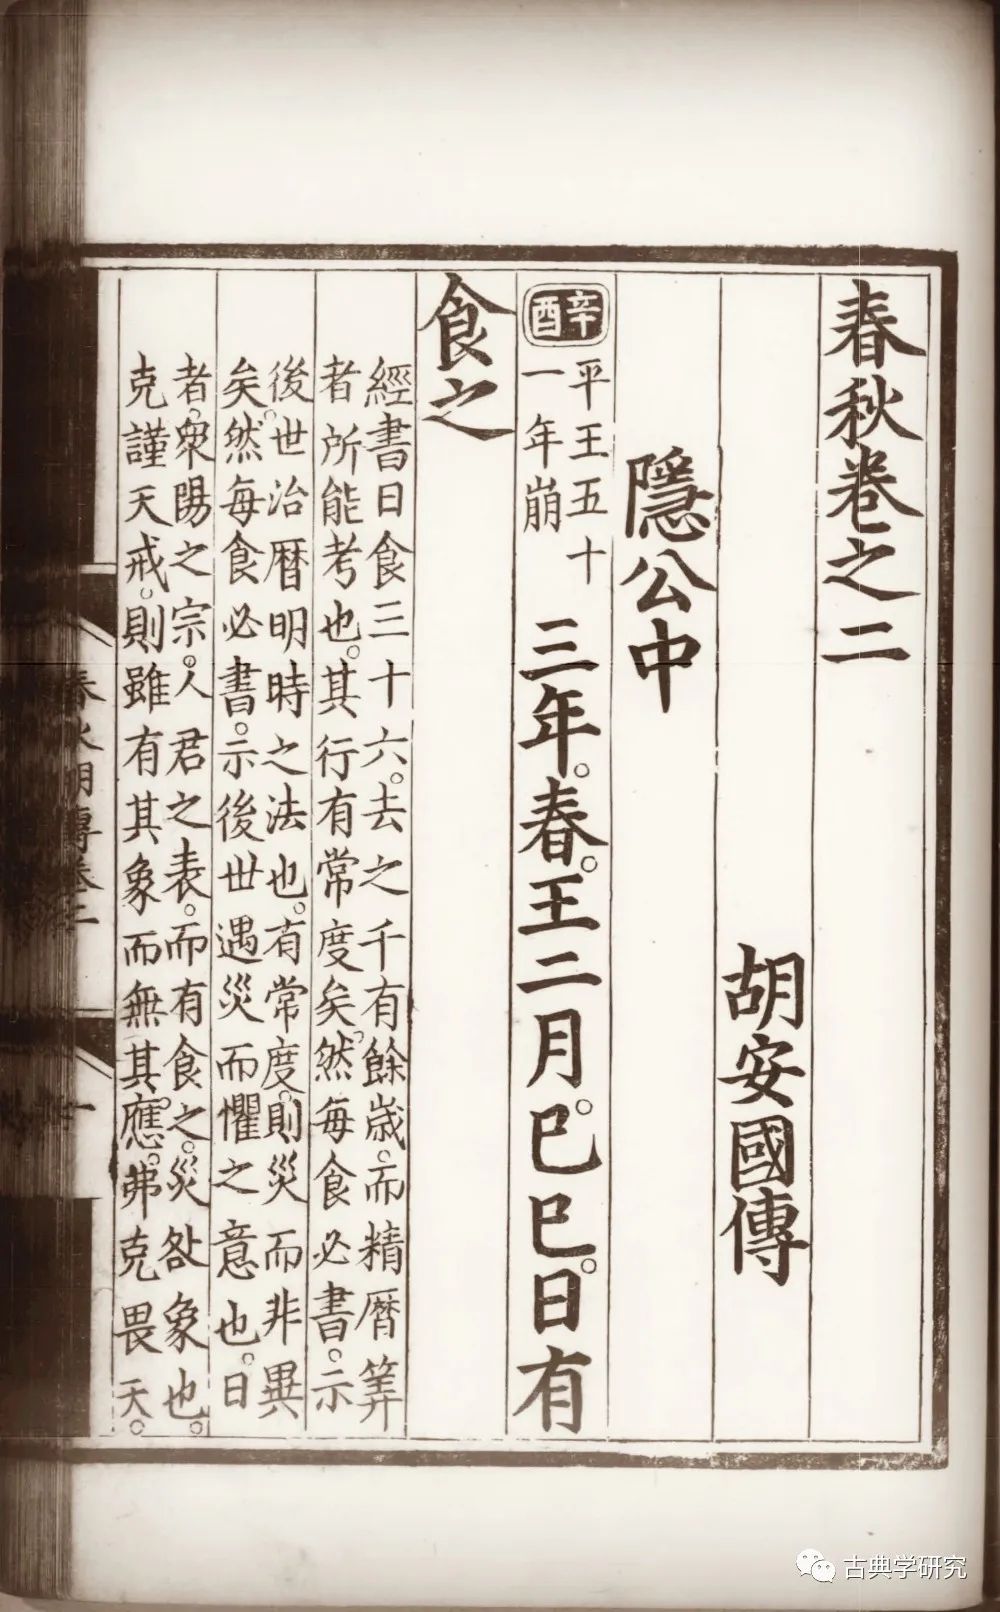 春秋卷之二
胡安國傳
隱公中
辛酉
平王五十
一年崩
三年。春。王二月。巳巳。日有
食之
經書日食三十六。去之千有餘歲。而精暦筭
者所能考也。其行有常度矣。然每食必書。示
後。世治暦明時之法也。有常度。則災而非異
矣。然每食必書。示後世遇災而懼之意也。日
者。衆陽之宗。人君之表。而有食之。災咎象也。
克謹天戒。則雖有其象而無其應。弗克畏天。
春秋胡傳卷二
古典学研究